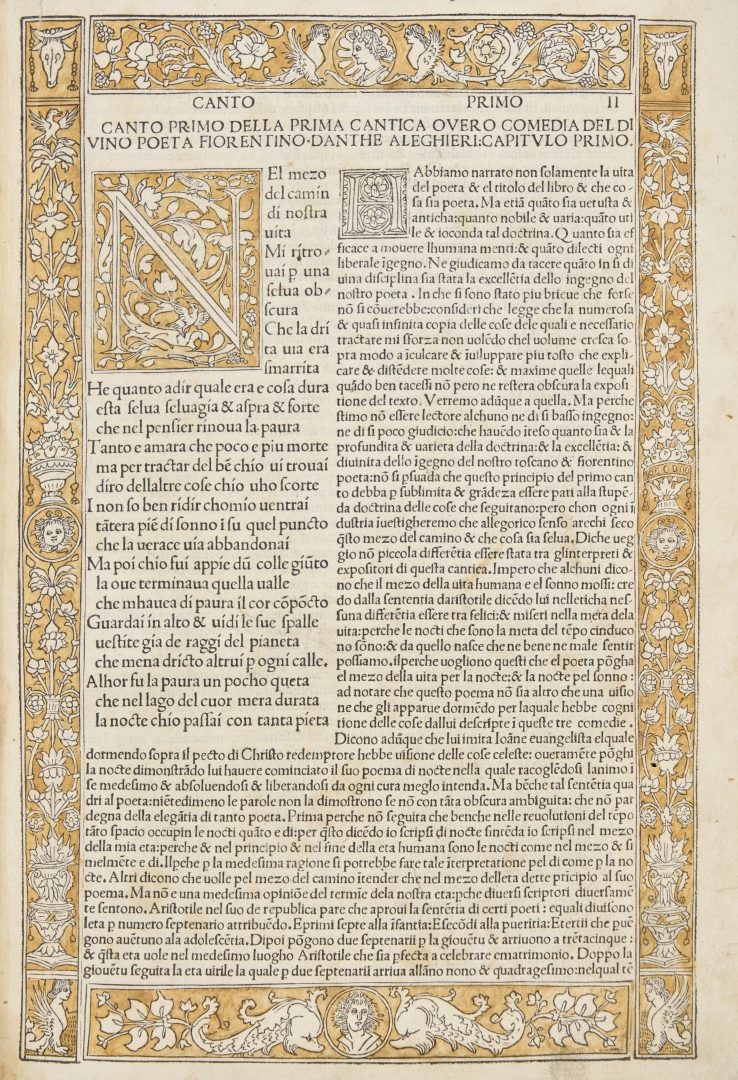 CANTO PRIMO II
CANTO PRIMO DELLA PRIMA CANTICA OVERO COMEDIA DEL DI
VINO POETA FIORENTINO·DANTHE ALEGHIERI:CAPITVLO PRIMO.
NEl mezo
del camin
di nostra
uita
Mi ritro-
uai p una
selua ob-
scura
Che la dri
ta uia era
smarrita
He quanto adir quale era e cosa dura
esta selua seluagia & aspra & forte
che nel pensier rinoua la paura
Tanto e amara che poco e piu morte
ma per tractar del bẽ chio ui trouai
diro dellaltre cose chio uho scorte
I non so ben ridir chomio uentrai
tãtera piẽ di sonno ĩ su quel puncto
che la uerace uia abbandonai
Ma poi chio fui appie dũ colle giũto
la oue terminaua quella ualle
che mhauea di paura il cor cõpõcto
Guardai in alto & uidi le sue spalle
uestite gia de raggi del pianeta
che mena dricto altrui p ogni calle.
Alhor fu la paura un pocho queta
che nel lago del cuor mera durata
la nocte chio passai con tanta pieta
HAbbiamo narrato non solamente la uita
del poeta & el titolo del libro & che co-
sa sia poeta. Ma etiã quãto sia uetusta &
anticha:quanto nobile & uaria:quãto uti
le & ioconda tal doctrina. Quanto sia ef
ficace a mouere lhumana menti:& quãto dilecti ogni
liberale ĩgegno. Ne giudicamo da tacere quãto in si di
uina disciplina sia stata la excellẽtia dello ingegno del
nostro poeta. In che si sono stato piu brieue che forse
nõ si cõuerrebbe:consideri che legge che la numerosa
& quasi infinita copia delle cose dele quali e necessario
tractare mi sforza non uolẽdo chel uolume cresca so
pra modo a ĩculcare & ĩuiluppare piu tosto che expli
care & distẽdere molte cose: & maxime quelle lequali
quãdo ben tacessi nõ pero ne restera obscura la exposi
tione del texto. Verremo adũque a quella. Ma perche
stimo nõ essere lectore alchuno ne di si basso ingegno:
ne di si poco giudicio:che hauẽdo ĩteso quanto sia & la
profundita & uarieta della doctrina:& la excellẽtia: &
diuinita dello ĩgegno del nostro toscano & fiorentino
poeta:nõ si psuada che questo principio del primo can
to debba p sublimita & grãdeza essere pari alla stupẽ-
da doctrina delle cose che seguitano:pero chon ogni ĩ
dustria ĩuestigheremo che allegorico senso arechi seco
q̃sto mezo del camino & che cosa sia selua. Diche ueg
gio nõ piccola differẽtia essere stata tra glinterpreti &
expositori di questa cantica. Impero che alchuni dico-
no che il mezo della uita humana e el sonno mossi: cre
do dalla sententia daristotile dicẽdo lui nelleticha nes-
suna differẽtia essere tra felici:& miseri nella meta dela
uita:perche le nocti che sono la meta del tẽpo cinduco
no sõno:& da quello nasce che bene ne male sentir
possiamo. ilperche uogliono questi che el poeta põgha
el mezo della uita per la nocte:& la nocte pel sonno :
ad notare che questo poema nõ sia altro che una uisio
ne che gli apparue dormẽdo per laquale hebbe cogni
tione delle cose dallui descripte ĩ queste tre comedie .
Dicono adũque che lui imita Ioãne euangelista elquale
dormendo sopra il pecto di Christo redemptore hebbe uisione delle cose celeste: oueramẽte põghi
la nocte dimonstrãdo lui hauere cominciato il suo poema di nocte nella quale racoglẽdosi lanimo ĩ
se medesimo & absoluendosi & liberandosi da ogni cura meglo intenda. Ma bẽche tal sentẽtia qua
dri al poeta:niẽtedimeno le parole non la dimostrono se nõ con tãta obscura ambiguita: che nõ par
degna della elegãtia di tanto poeta. Prima perche nõ seguita che benche nelle reuolutioni del tẽpo
tãto spacio occupin le nocti quãto e di:per q̃sto dicẽdo io scripsi di nocte sintẽda io scripsi nel mezo
della mia eta:perche & nel principio & nel fine della eta humana sono le nocti come nel mezo & si
melmẽte e di. Ilpche p la medesima ragione si potrebbe fare tale ĩterpretatione pel di come p la no
cte. Altri dicono che uolle pel mezo del camino ĩtender che nel mezo delleta dette prĩcipio al suo
poema. Ma nõ e una medesima opiniõe del termĩe dela nostra eta:pche diuersi scriptori diuersamẽ
te sentono. Aristotile nel suo de republica pare che aproui la sentẽtia di certi poeti : equali diuisono
leta p numero septenario attribuẽdo. Eprimi septe alla ĩfantia:Esecõdi alla pueritia:Etertii che puẽ
gono auẽtuno ala adolescẽtia. Dipoi põgono due septenarii p la giouẽtu & arriuono a trẽtacinque :
& q̃sta eta uole nel medesimo luogho Aristotile che sia pfecta a celebrare ematrimonio. Doppo la
giouẽtu seguita la eta uirile la quale p due septenarii arriua allãno nono & quadragesimo:nelqual tẽ